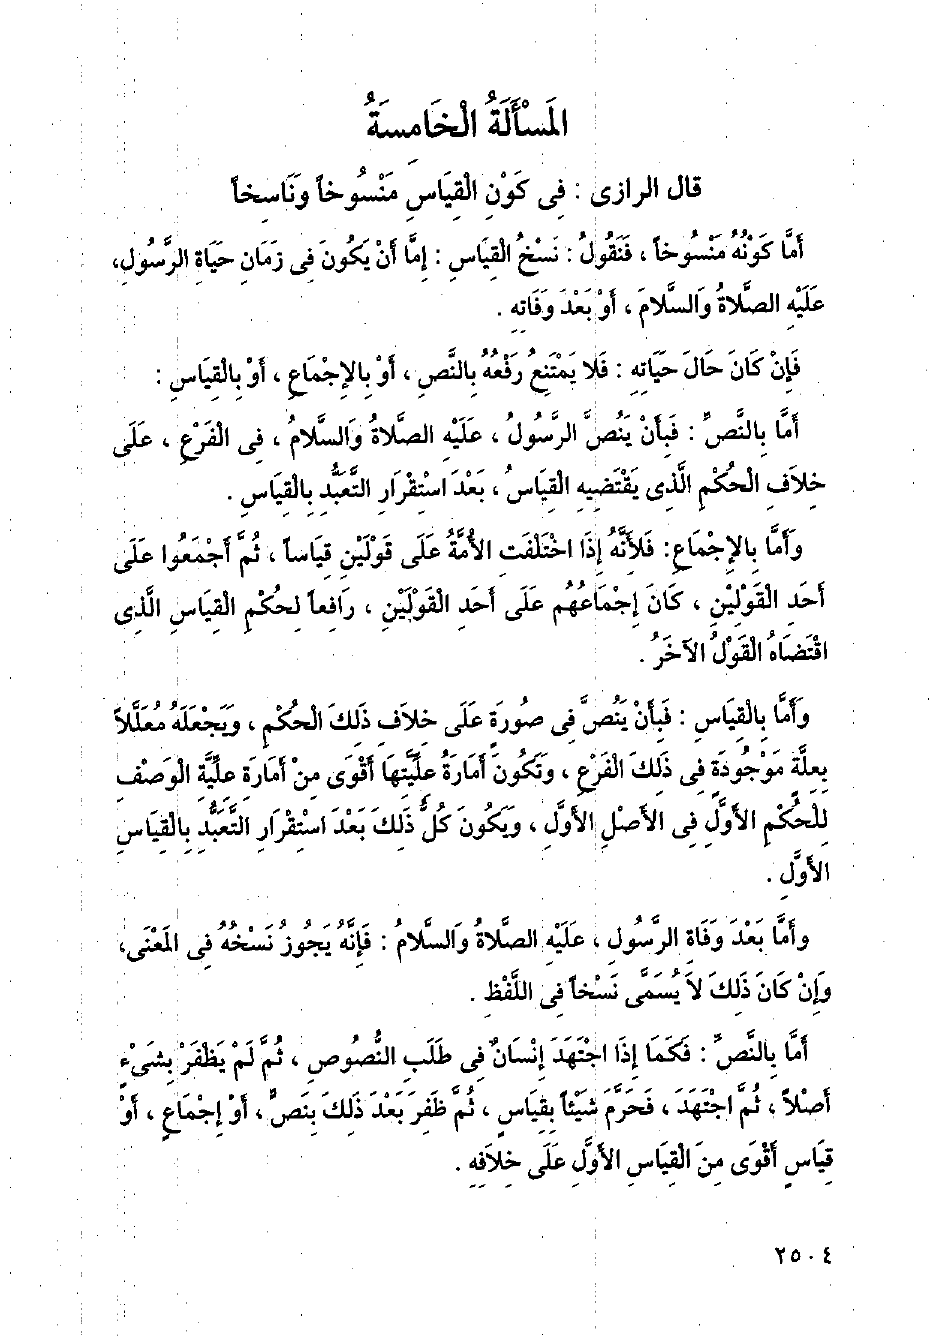 المَسْأَلَةُ الْخَامِسَةُ
قال الرازى : فِى كَوْنِ الْقِيَاسِ مَنْسُوخاً وَنَاسِخاً
أَمَّا كَوْنُهُ مَنْسُوخاً ، فَنَقُولُ : نَسْخُ الْقِيَاسِ : إِمَّا أَنْ يَكُونَ فِى زَمَانِ حَيَاةِ الرَّسُولِ،
عَلَيْهِ الصَّلاةُ وَالسَّلامَ ، أَوْ بَعْدَ وَفَاتِهِ .
فَإِنْ كَانَ حَالَ حَيَاتِهِ : فَلا يَمْتَنِعُ رَفْعُهُ بِالنَّصِ ، أَوْ بِالإِجْمَاعِ ، أَوْ بِالْقِيَاسِ :
أَمَّا بِالنَّصِّ : فَبِأَنْ يَنُصَّ الرَّسُولُ ، عَلَيْهِ الصَّلاةُ وَالسَّلامُ ، فِى الْفَرْعِ ، عَلَى
خِلافِ الْحُكْمِ الَّذِى يَقْتَضِيهِ الْقِيَاسُ ، بَعْدَ اسْتِقْرَارِ التَّعَبُّدِ بِالْقِيَاسِ .
وَأَمَّا بِالإِجْمَاعِ: فَلأَنَّهُ إِذَا اخْتَلَفَتِ الأُمَّةُ عَلَى قَوْلَيْنِ قِيَاساً ، ثُمَّ أَجْمَعُوا عَلَى
أَحَدِ الْقَوْلَيْنِ ، كَانَ إِجْمَاعُهُم عَلَى أَحَدِ الْقَوْلَيْنِ ، رَافِعاً لِحُكْمِ الْقِيَاسِ الَّذِى
اقْتَضَاهُ الْقَوْلُ الآخَرُ .
وَأَمَّا بِالْقِيَاسِ : فَبِأَنْ يَنُصَّ فِى صُورَةٍ عَلَى خِلافِ ذَلِكَ الْحُكْمِ ، وَيَجْعَلَهُ مُعَلَّلاً
بِعِلَّةٍ مَوْجُودَةٍ فِى ذَلِكَ الْفَرْعِ ، وَتَكُونَ أَمَارَةُ عِلِّيَّتِهَا أَقْوَى مِنْ أَمَارَةِ عِلِّيَّةِ الْوَصْفِ
لِلْحُكْمِ الأَوَّلِ فِى الأَصْلِ الأَوَّلِ ، وَيَكُونَ كُلُّ ذَلِكَ بَعْدَ اسْتِقْرَارِ التَّعَبُّدِ بِالْقِيَاسِ
الأَوَّلِ .
وأَمَّا بَعْدَ وَفَاةِ الرَّسُولِ ، عَلَيْهِ الصَّلاةُ وَالسَّلامُ : فَإِنَّهُ يَجُوزُ نَسْخُهُ فِى المَعْنَى،
وَإِنْ كَانَ ذَلِكَ لاَ يُسَمَّى نَسْخاً فِى اللَّفْظِ .
أَمَّا بِالنَّصِّ : فَكَمَا إِذَا اجْتَهَدَ إِنْسَانٌ فِى طَلَبِ النُّصُوصِ ، ثُمَّ لَمْ يَظْفَرْ بِشَىْءٍ
أَصْلاً ، ثُمَّ اجْتَهَدَ ، فَحَرَّمَ شَيْئاً بِقِيَاسٍ ، ثُمَّ ظَفِرَ بَعْدَ ذَلِكَ بِنَصٍّ ، أَوْ إِجْمَاعٍ ، أَوْ
قِيَاسٍ أَقْوَى مِنَ الْقِيَاسِ الأَوَّلِ عَلَى خِلافِهِ .
٢٥٠٤